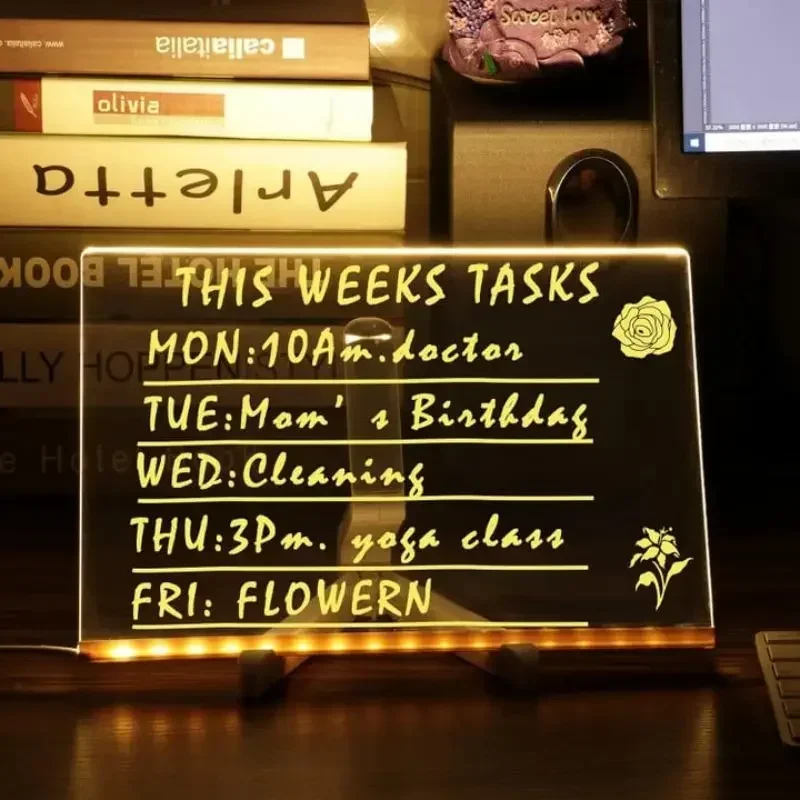 Sweet Love
www.caliaitalia.com
caliaitalia
olivia
Arletta
THE HOTEL BOOK
THIS WEEKS TASKS
MON:10Am.doctor
TUE:Mom's Birthdag
WED:Cleaning
THU:3Pm. yoga class
FRI: FLOWERN